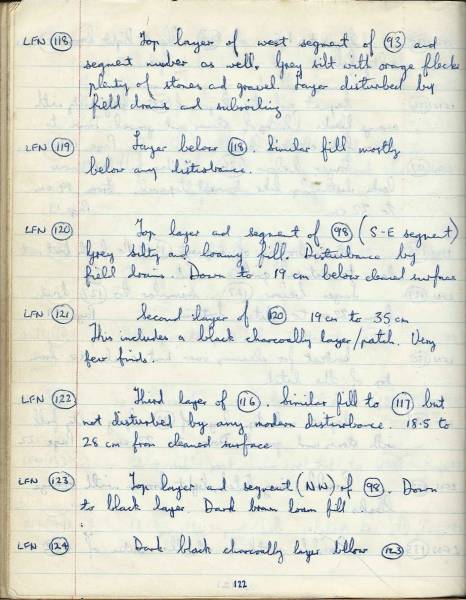 LFN 118 Top layer of west segment of 93 and
segment number as well. Grey silt with orange flecks
plenty of stones and gravel. Layer disturbed by
field drains and subsoiling
LFN 119 Layer below 118. Similar fill mostly
below any disturbance.
LFN 120 Top layer and segment of 98 (S-E segment)
Grey silty and loamy fill. Disturbance by
field drains. Down to 19 cm below cleaned surface
LFN 121 Second layer of 120 19 cm to 35 cm
This includes a black charcoally layer/patch. Very
few finds.
LFN 122 Third layer of 116. Similar fill to 117 but
not disturbed by any modern disturbance. 18.5 to
28 cm from cleaned surface
LFN 123 Top layer and segment (NW) of 98. Down
to black layer Dark brown loam fill
LFN 124 Dark black charcoally layer bllow 123
122